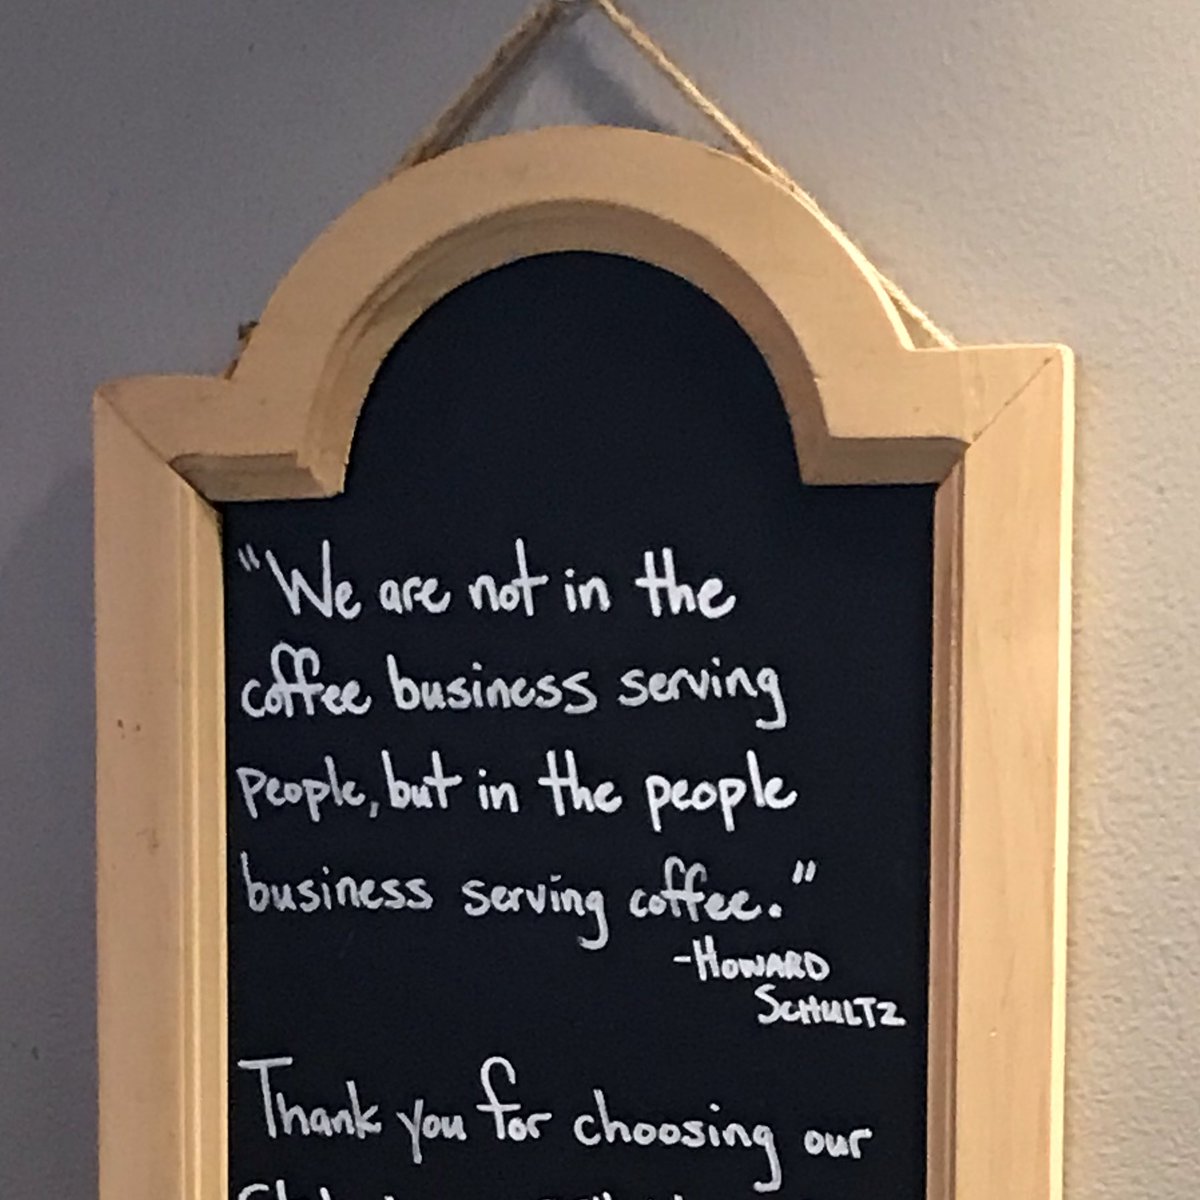 "We are not in the
coffee business serving
people, but in the people
business serving coffee."
-HOWARD
SCHULTZ
Thank you for choosing our